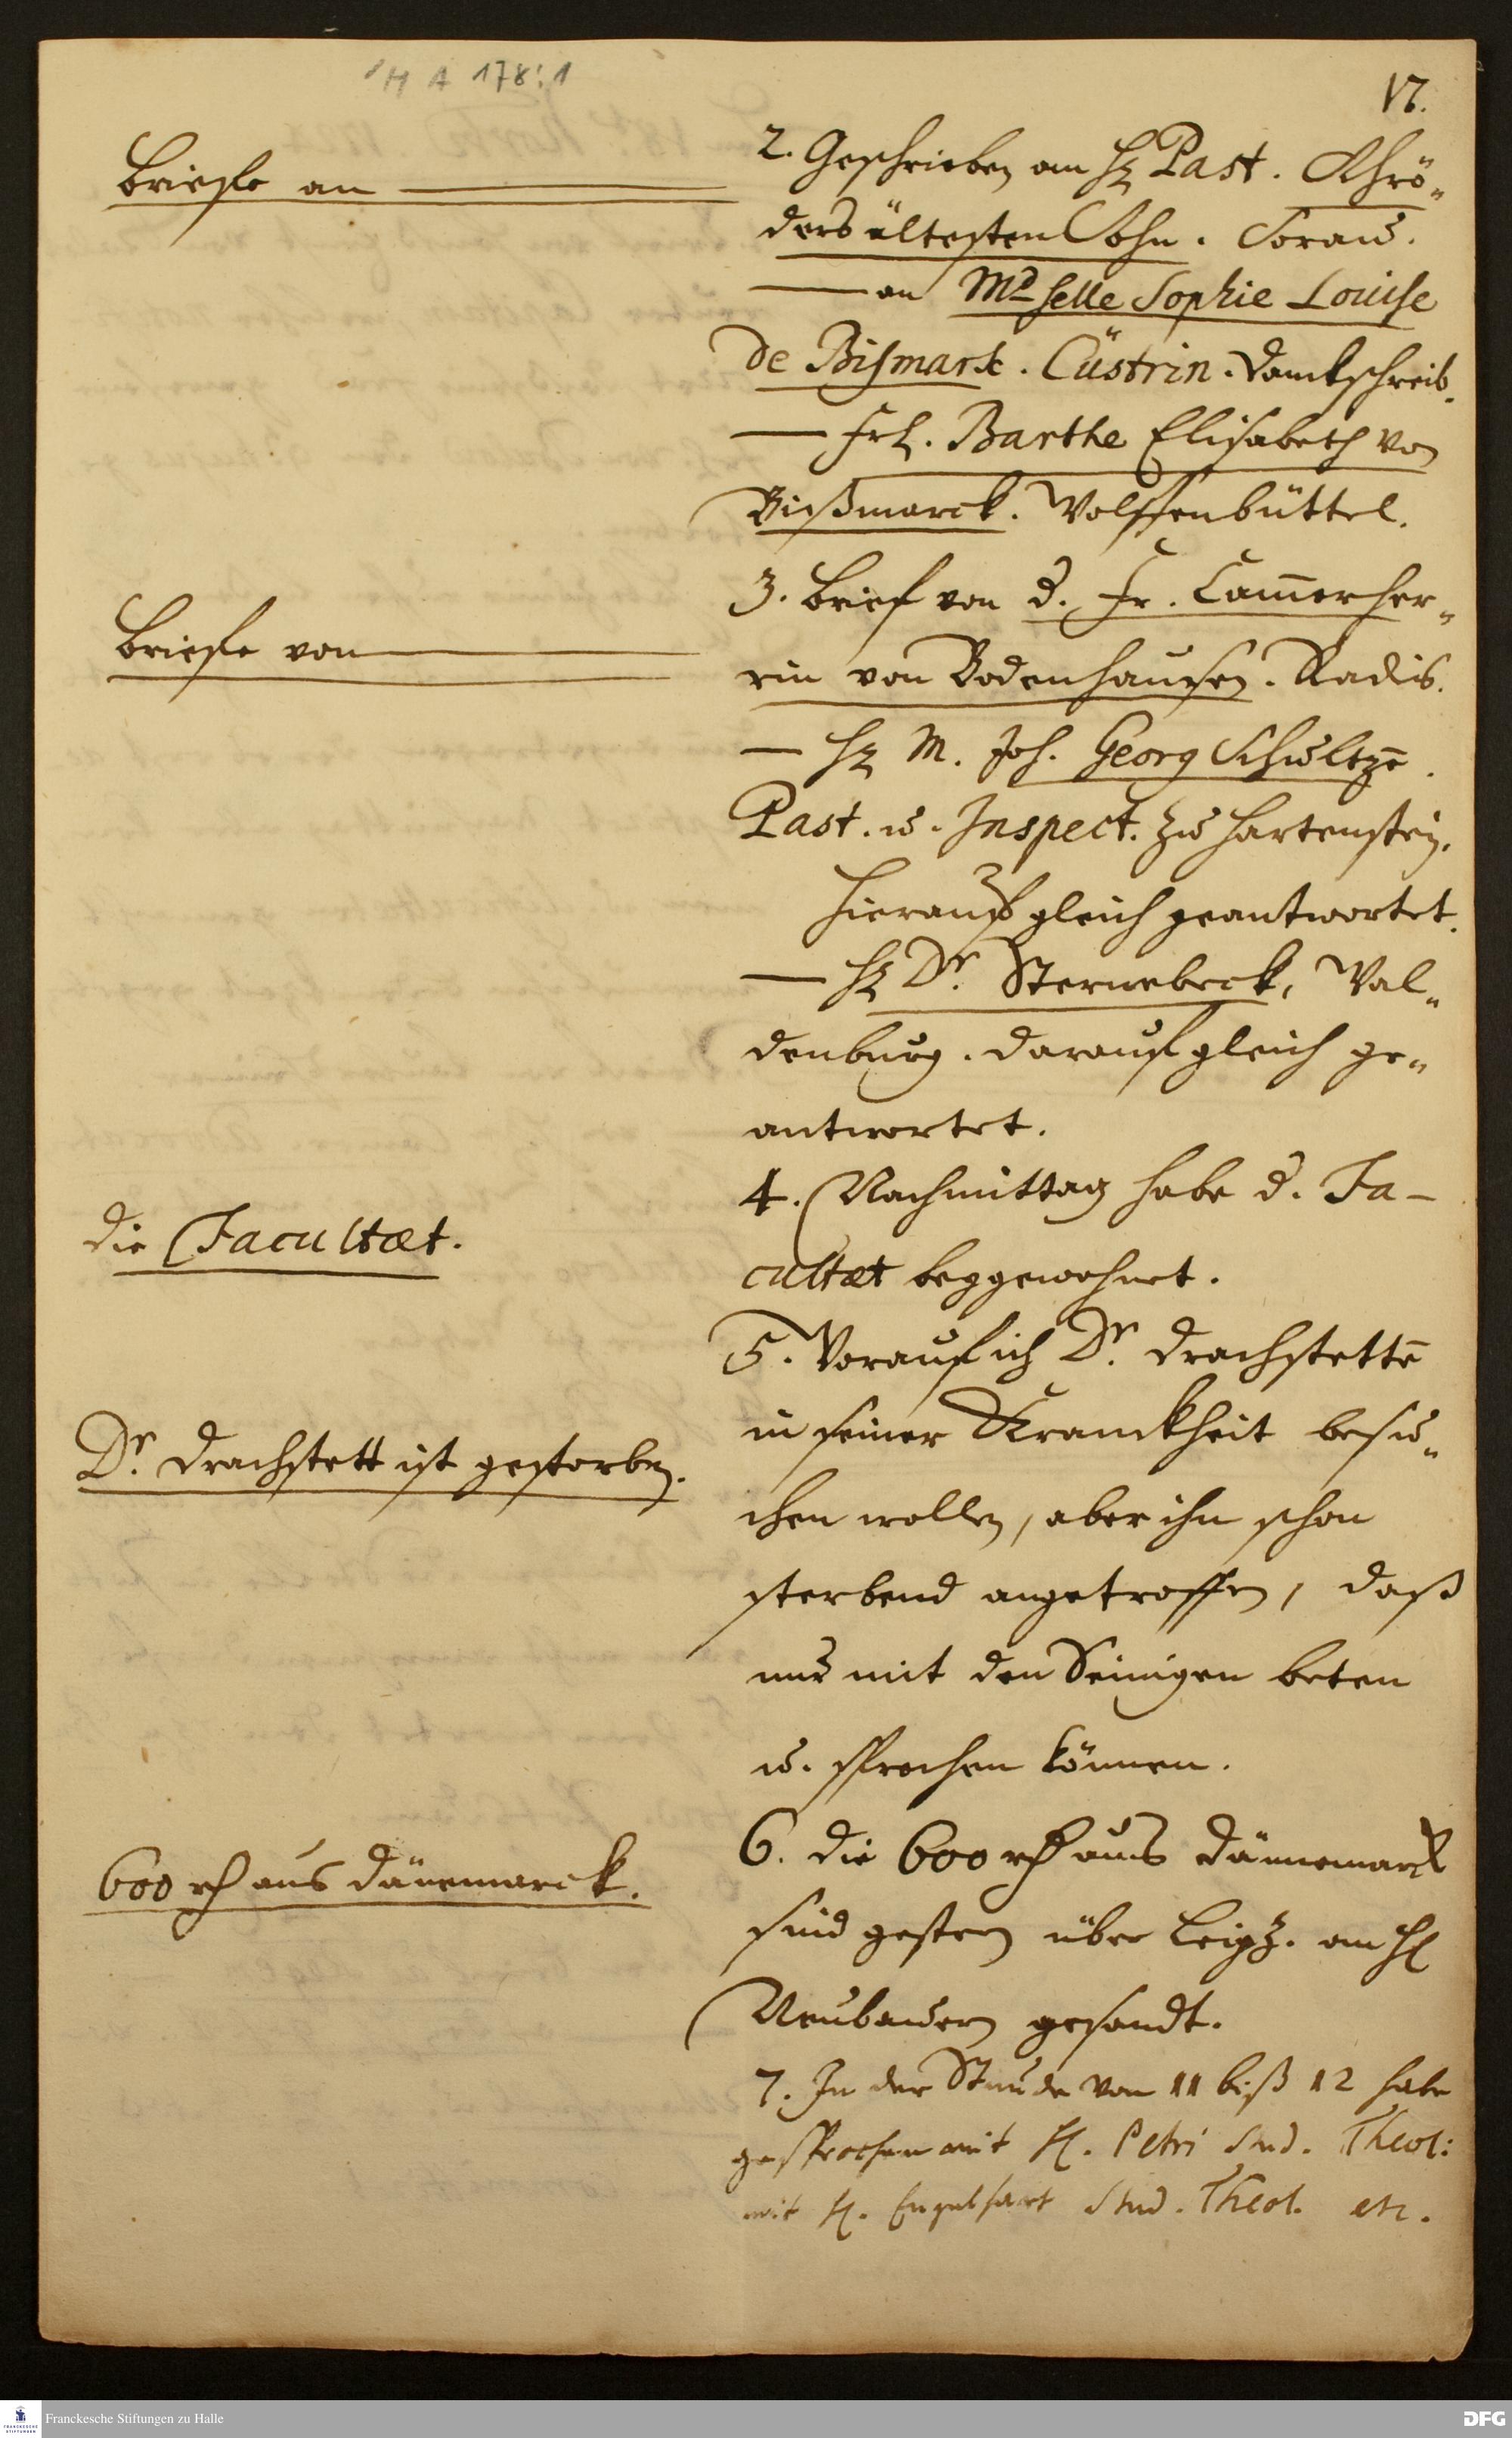 H A 178:1
17.
Briefe an
2. Geschrieben an H. Past. Schrö-
ders ältesten Sohn. Sorau.
— an Mdselle Sophie Louise
de Bismark. Cüstrin. Danckschreib.
— Frl. Barthe Elisabeth von
Bißmarck. Wolffenbüttel.
Briefe von
3. Brief von d. Fr. Cam̅erher-
rin von Bodenhausen. Radis.
— H. M. Joh. Georg Schultze̅.
Past. u. Inspect. zu Hartenstein.
Hierauf gleich geantwortet.
— H. Dr. Sternebeck, Wal-
denburg. Darauf gleich ge-
antwortet.
die Facultæt.
4. Nachmittag habe d. Fa-
cultæt beygewohnet.
5. Worauf ich Dr. Drachstette̅
Dr. Drachstett ist gestorben.
in seiner Kranckheit besu-
chen wollen, aber ihn schon
sterbend angetroffen, daß
nur mit den Seinigen beten
u. sprechen können.
600 rh aus Dänemarck.
6. die 600 rh aus Dännemarck
sind gestern über Leipz. an H.
Neubauern gesandt.
7. In der Stunde von 11 biß 12 habe
gesprochen mit H. Petri Stud. Theol:
mit H. Engelhart Stud. Theol. etc.
Franckesche Stiftungen zu Halle
DFG